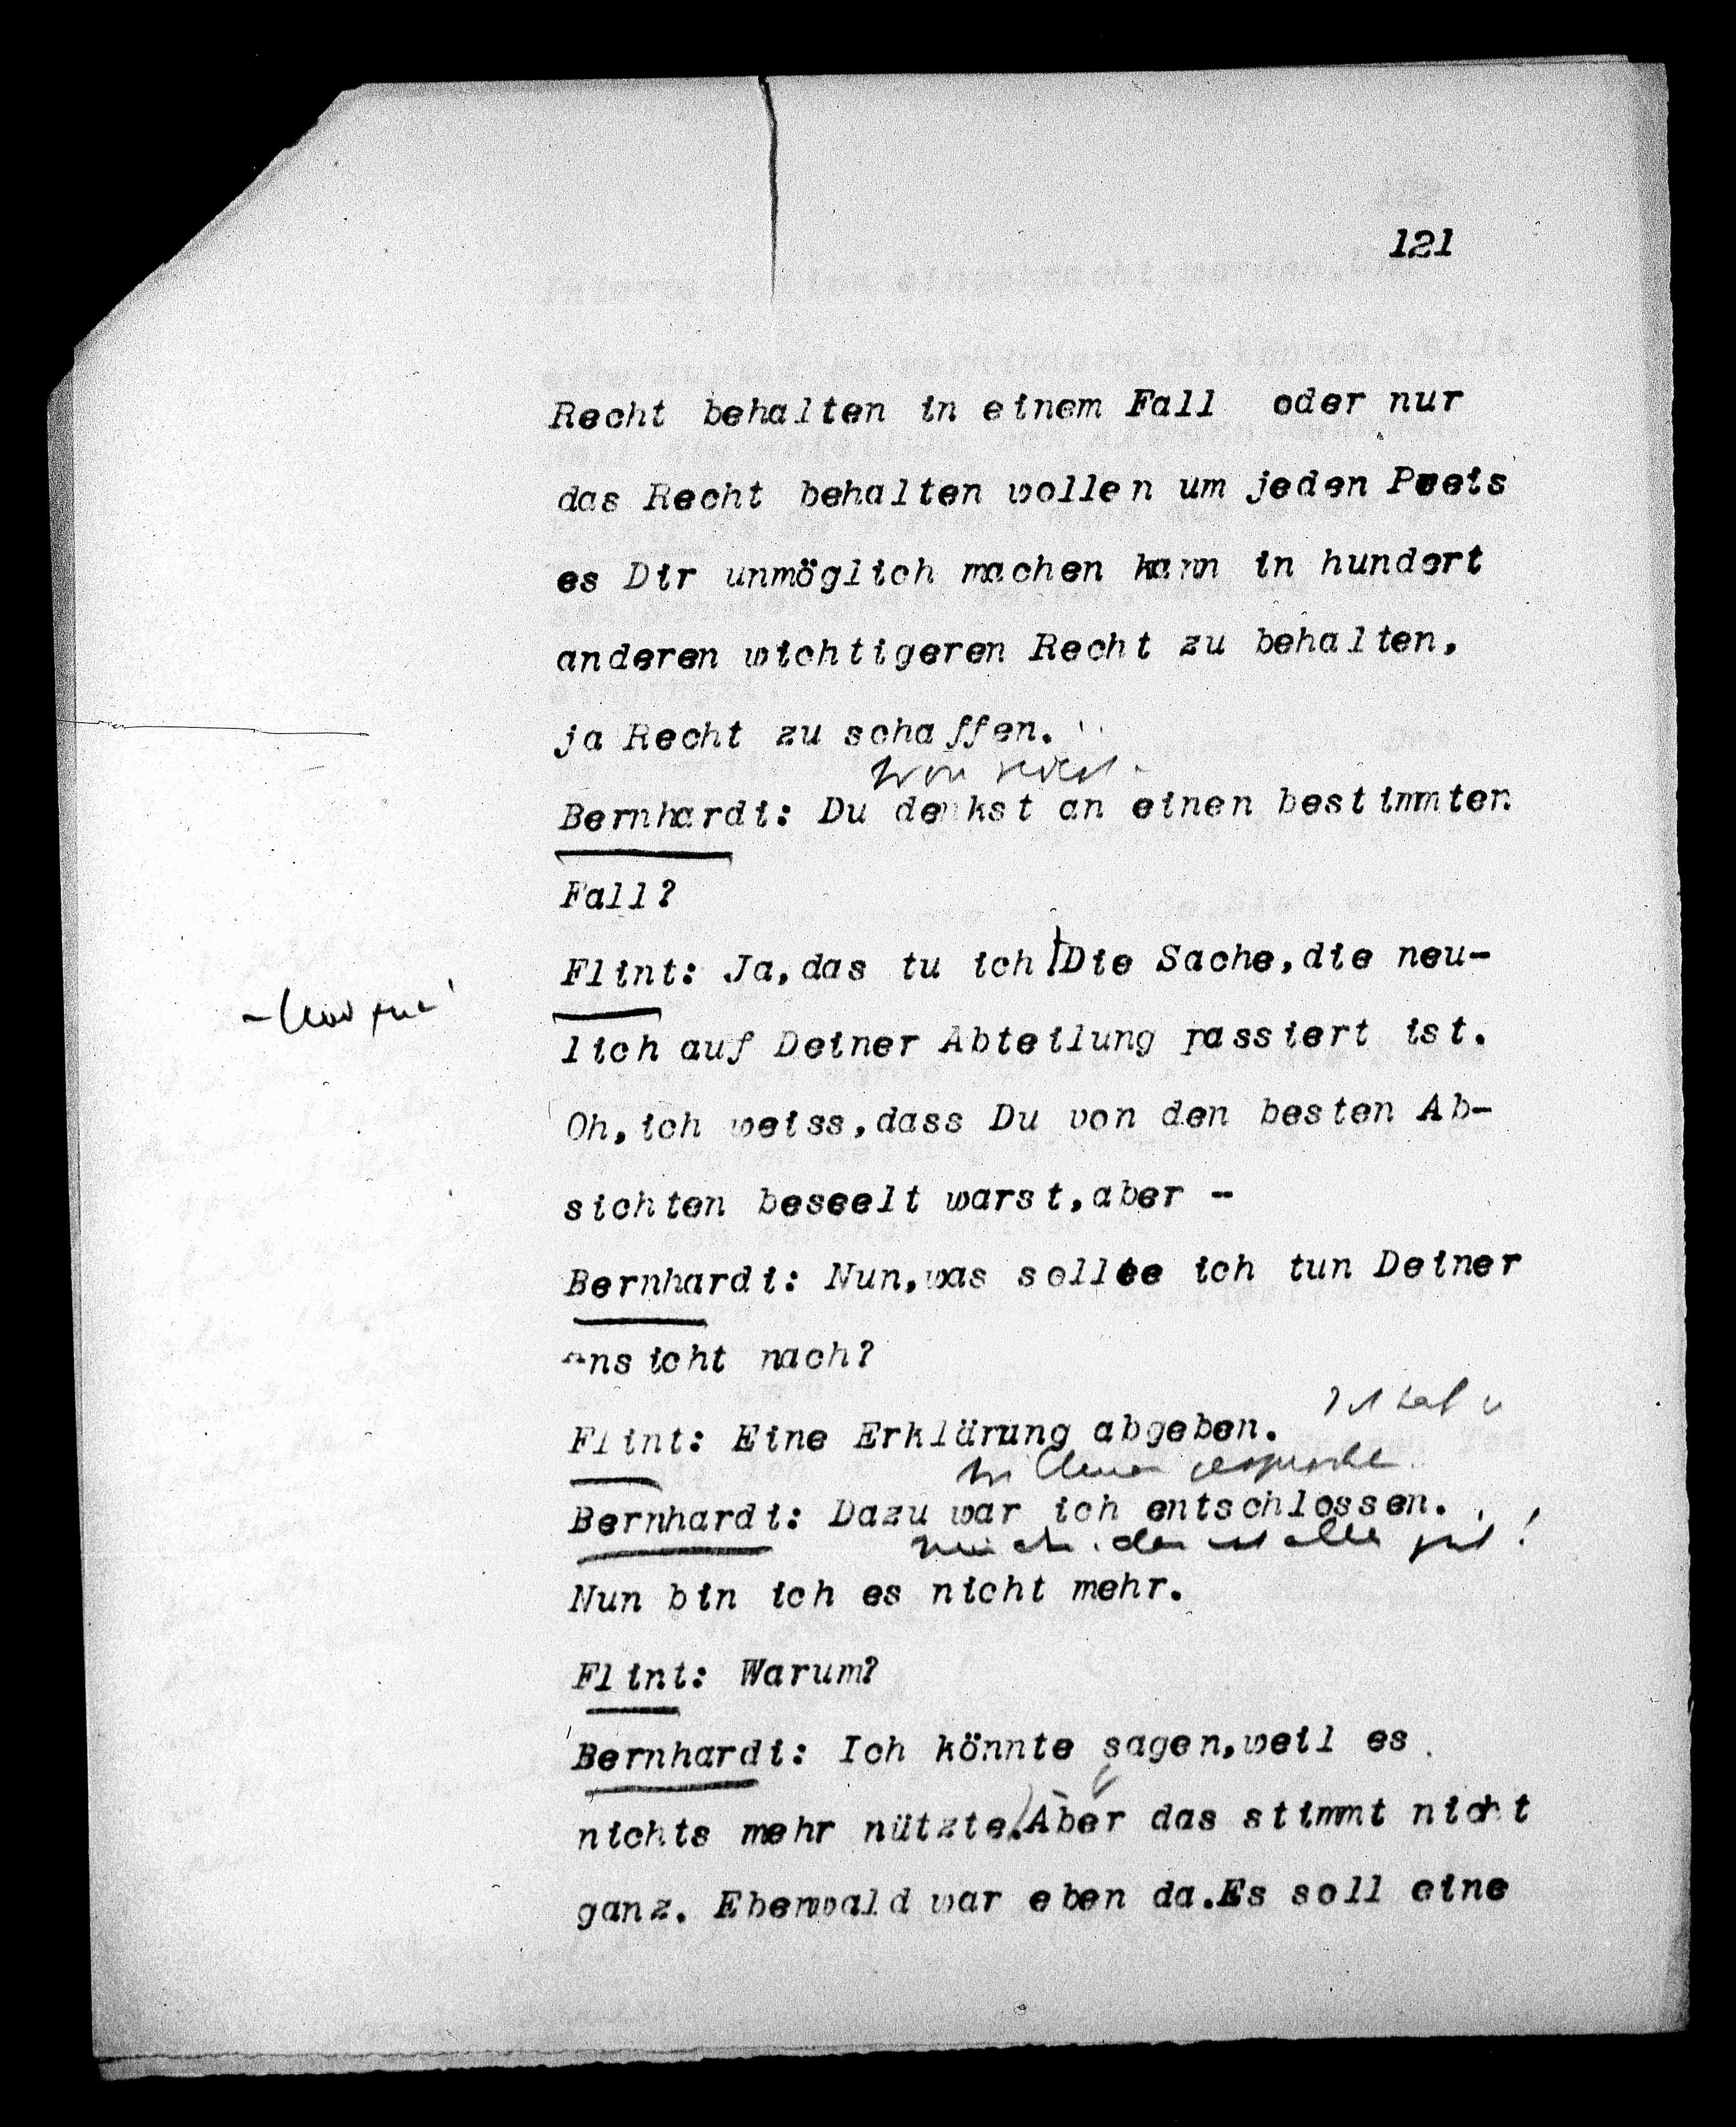 121
Recht behalten in einem Fall oder nur
das Recht behalten wollen um jeden Preis
es Dir unmöglich machen kann in hundert
anderen wichtigeren Recht zu behalten,
ja Recht zu schaffen.
Bernhardi: Du denkst an einen bestimmten
Fall?
Flint: Ja,das tu ich! Die Sache,die neu-
lich auf Deiner Abteilung passiert ist.
Oh,ich weiss,dass Du von den besten Ab-
sichten beseelt warst,aber -
Bernhardi: Nun,was sollte ich tun Deiner
Ansicht nach?
Flint: Eine Erklärung abgeben.
Bernhardi: Dazu war ich entschlossen.
alles gut!
Nun bin ich es nicht mehr.
Flint: Warum?
Bernhardi: Ich könnte sagen,weil es
nichts mehr nützte.Aber das stimmt nicht
ganz. Ebenwald war eben da.Es soll eine